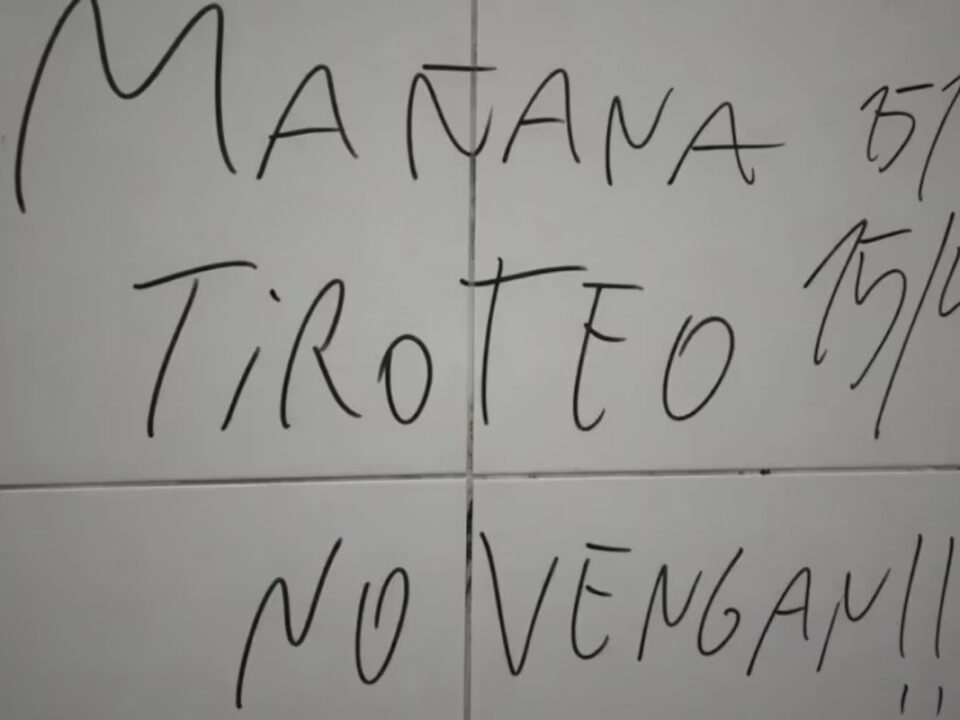 MAÑANA
TiROTEO 15/
NO VENGAN!!